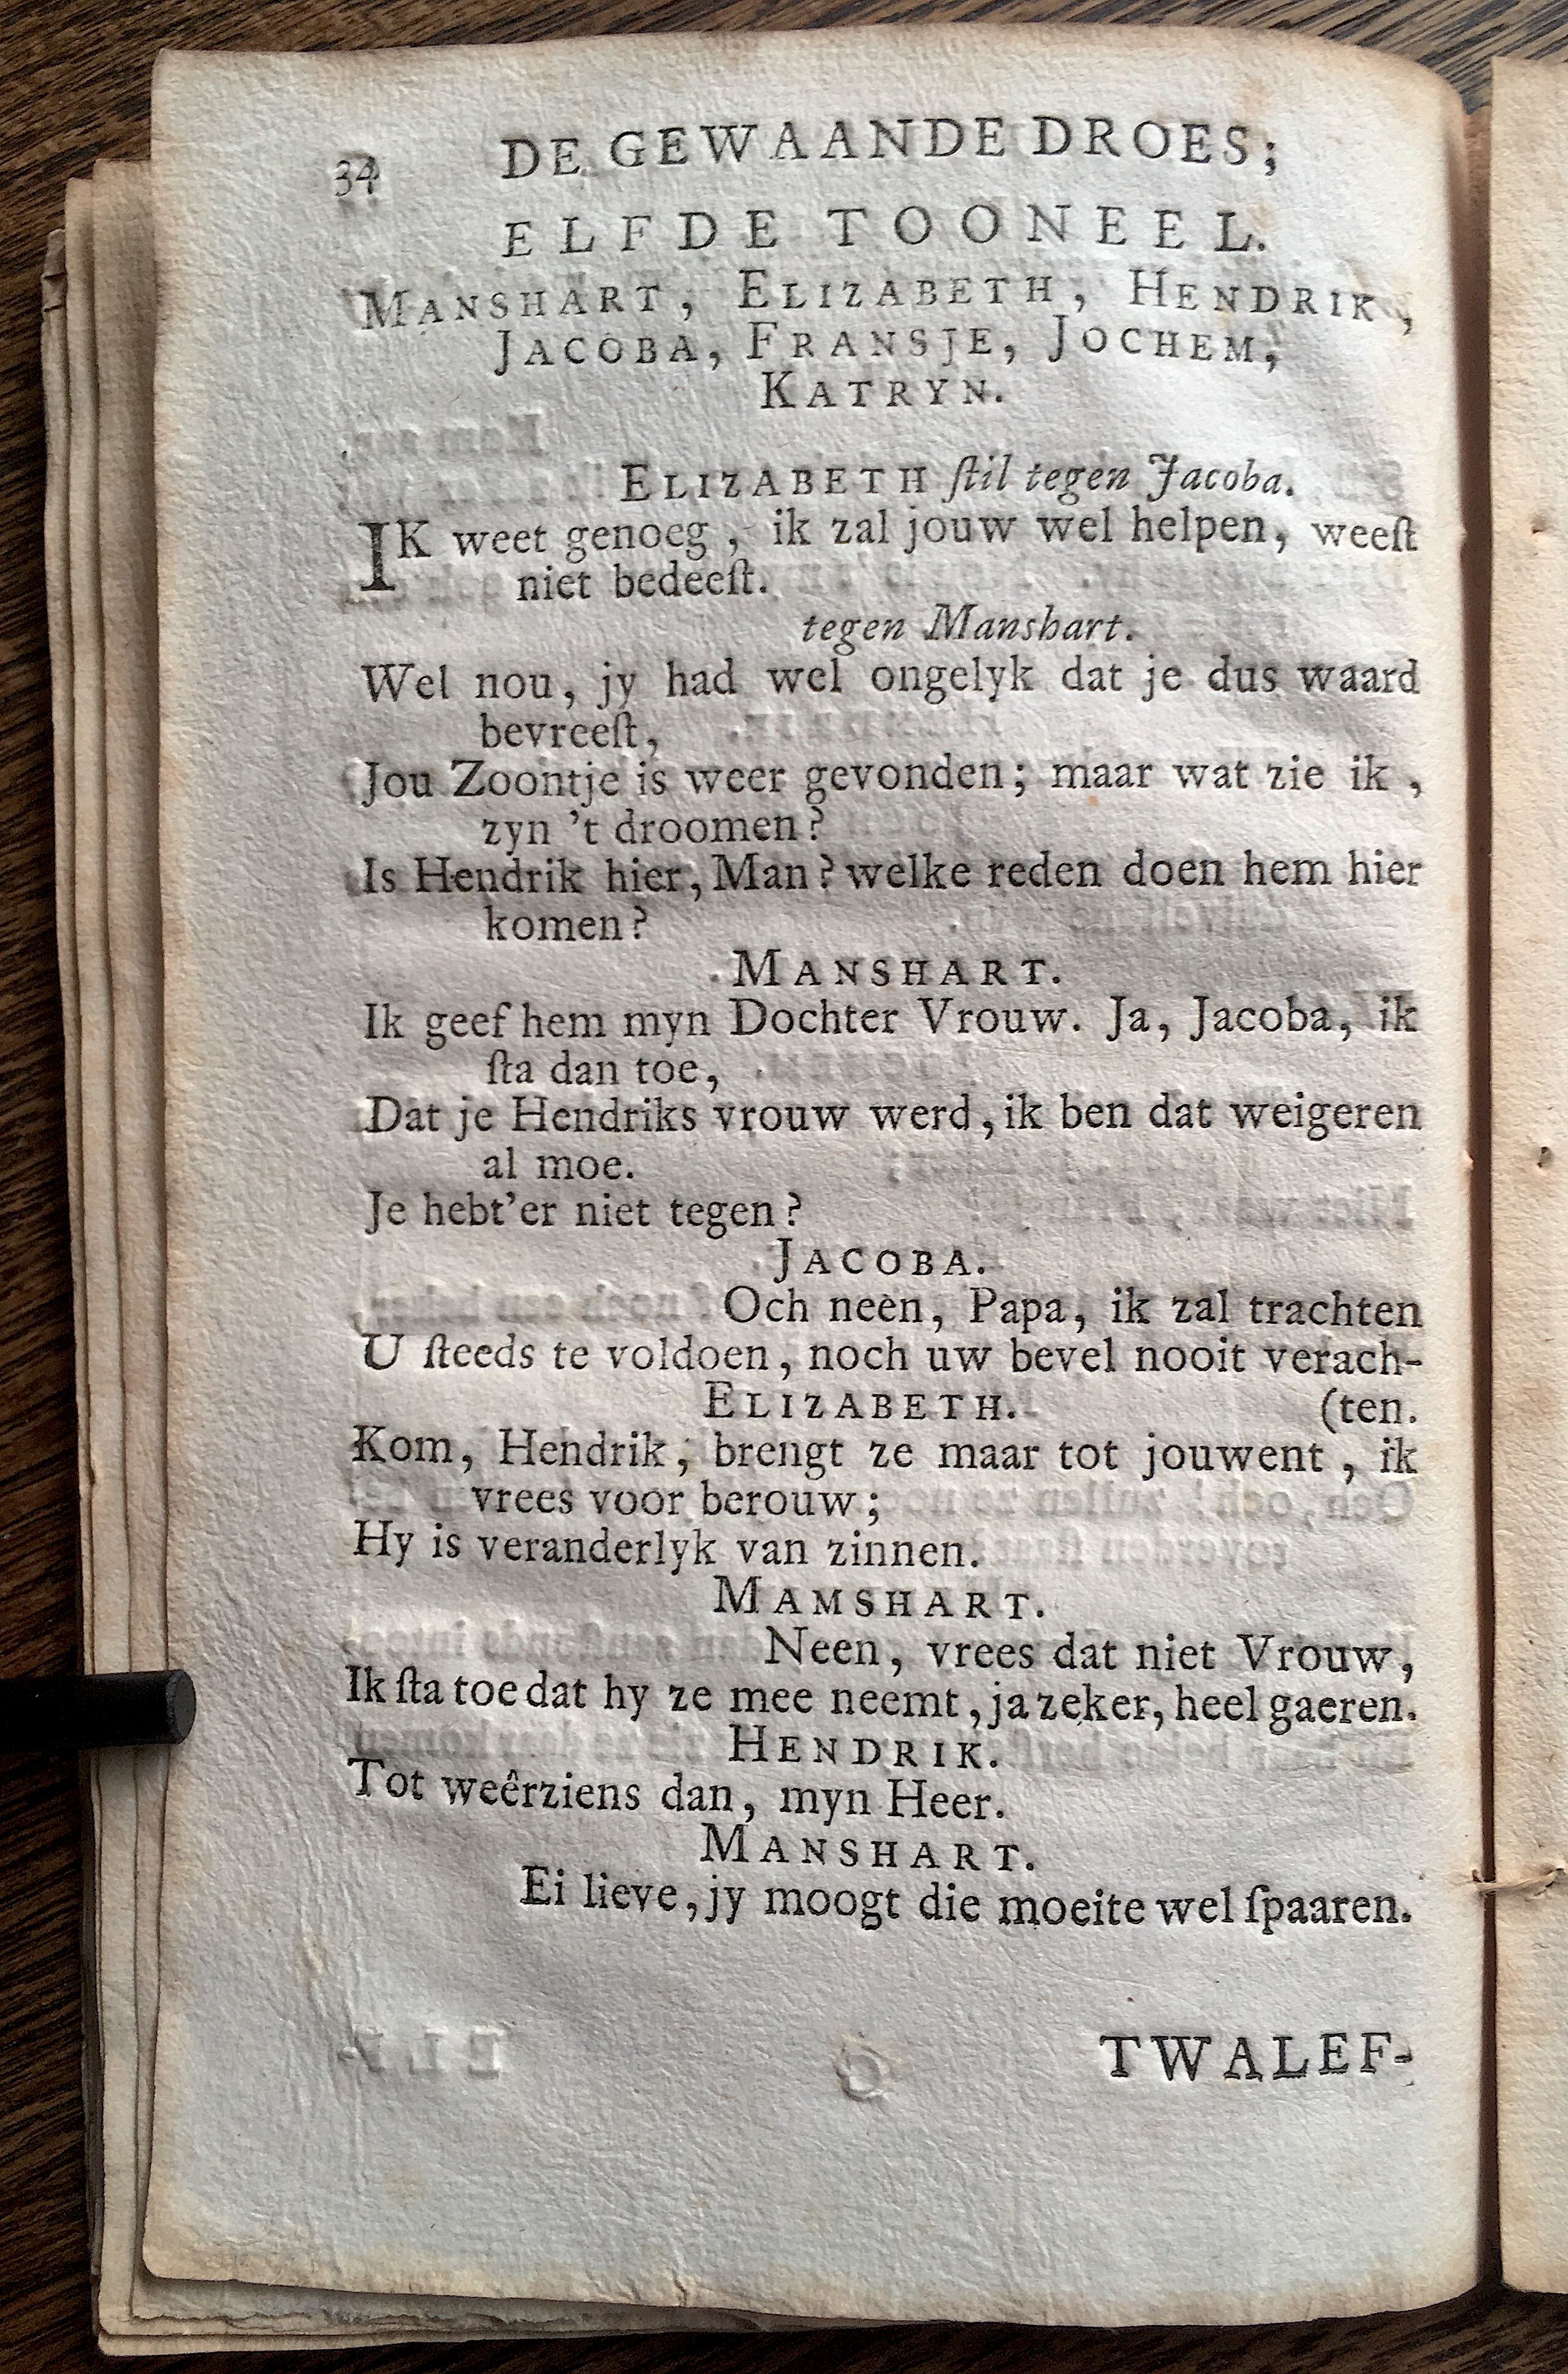 34 DE GEWAANDE DROES;
ELFDE TOONEEL.
MANSHART, ELIZABETH, HENDRIK,
JACOBA, FRANSJE, JOCHEM,
KATRYN.
ELIZABETH ſtil tegen Jacoba.
IK weet genoeg, ik zal jouw wel helpen, weeſt
niet bedeeſt.
tegen Manshart.
Wel nou, jy had wel ongelyk dat je dus waard
bevreeſt,
Jou Zoontje is weer gevonden; maar wat zie ik,
zyn 't droomen?
Is Hendrik hier, Man? welke reden doen hem hier
komen?
MANSHART.
Ik geef hem myn Dochter Vrouw. Ja, Jacoba, ik
ſta dan toe,
Dat je Hendriks vrouw werd, ik ben dat weigeren
al moe.
Je hebt'er niet tegen?
JACOBA.
Och neen, Papa, ik zal trachten
U ſteeds te voldoen, noch uw bevel nooit verach-
ELIZABETH. (ten.
Kom, Hendrik, brengt ze maar tot jouwent, ik
vrees voor berouw;
Hy is veranderlyk van zinnen.
MAMSHART.
Neen, vrees dat niet Vrouw,
Ik ſta toe dat hy ze mee neemt, ja zeker, heel gaeren.
HENDRIK.
Tot weêrziens dan, myn Heer.
MANSHART.
Ei lieve, jy moogt die moeite wel ſpaaren.
TWALEF-